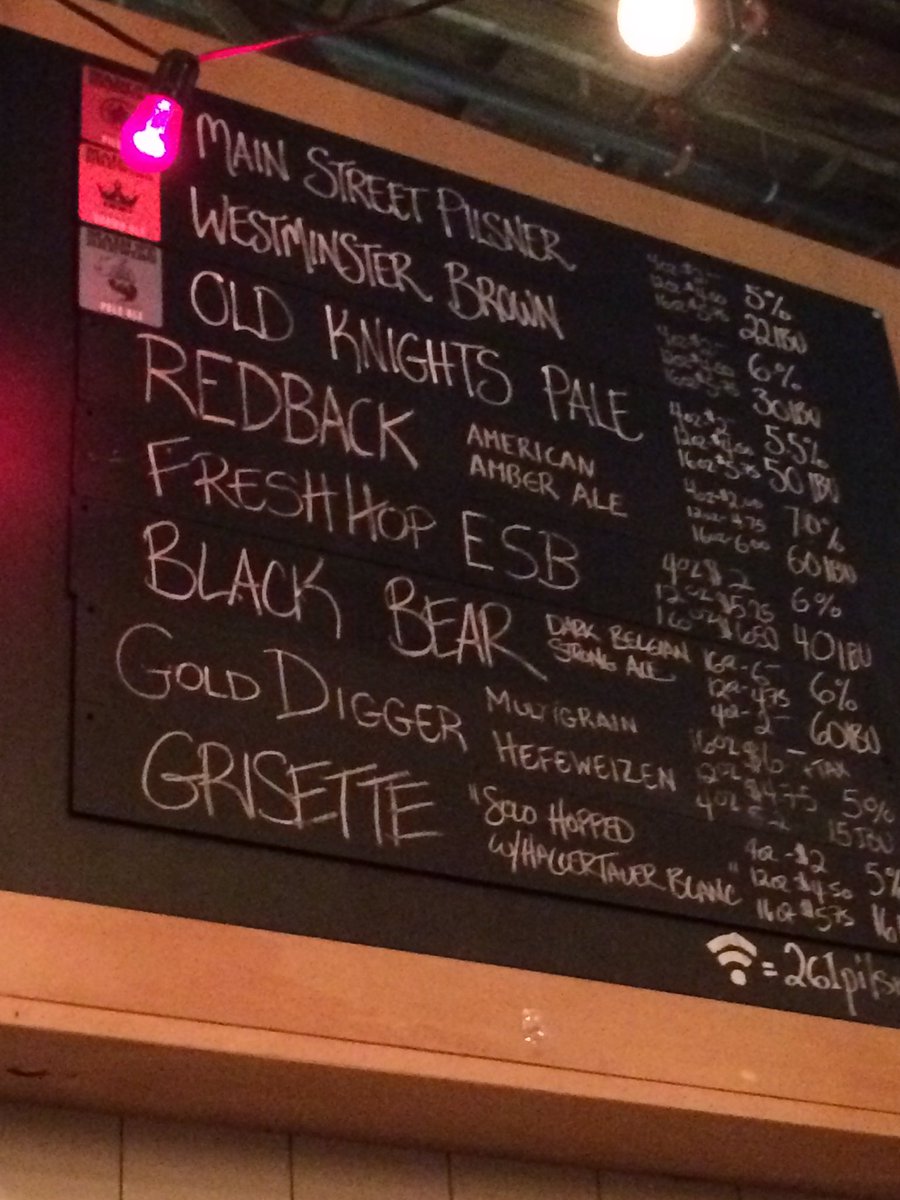 MAIN STREET PILSNER
5%
22 IBU
WESTMINSTER BROWN
6%
30 IBU
OLD KNIGHTS PALE
4OZ $2-
12OZ $4.50
16OZ $5.75
5.5%
50 IBU
REDBACK AMERICAN
AMBER ALE
4OZ-$2.00
12OZ-4.75
16OZ-6.00
7.0%
60 IBU
FRESH HOP ESB
4OZ $2
12OZ $5.75
16OZ $6.50
6%
40 IBU
BLACK BEAR DARK BELGIAN
STRONG ALE
16OZ-6-
12OZ-4.75
4OZ-2-
6%
60 IBU
GOLD DIGGER MULTIGRAIN
HEFEWEIZEN
16OZ $6- +TAX
12OZ $4.75
4OZ
5%
15 IBU
GRISETTE "SOLO HOPPED
W/HALLERTAUER BLANC"
4OZ-$2
12OZ $4.50
16OZ $5.75
5%
16
= 261pils
PALE ALE